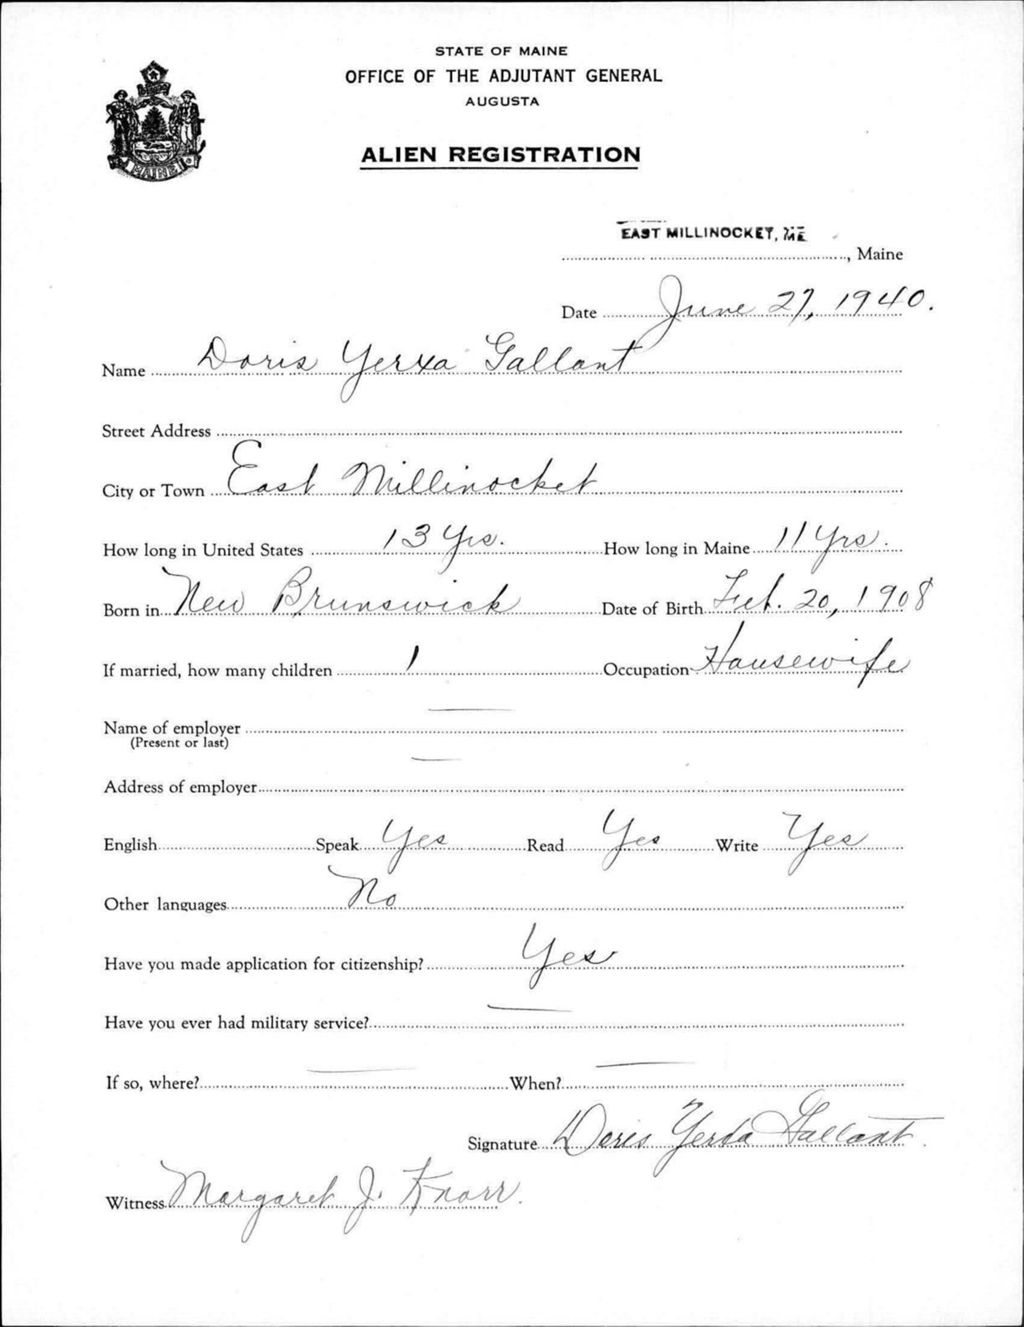 STATE OF MAINE
OFFICE OF THE ADJUTANT GENERAL
AUGUSTA
ALIEN REGISTRATION
MAINE
EAST MILLINOCKET, ME
, Maine
Date June 27, 1940.
Name Doris Yerxa Gallant
Street Address
City or Town East Millinocket
How long in United States 13 Yrs. How long in Maine 11 Yrs.
Born in New Brunswick Date of Birth Feb. 20, 1908
If married, how many children 1 Occupation Housewife
Name of employer
(Present or last)
Address of employer
English Speak Yes Read Yes Write Yes
Other languages No
Have you made application for citizenship? Yes
Have you ever had military service?
If so, where? When?
Signature Doris Yerxa Gallant
Witness Margaret J. Knorr.